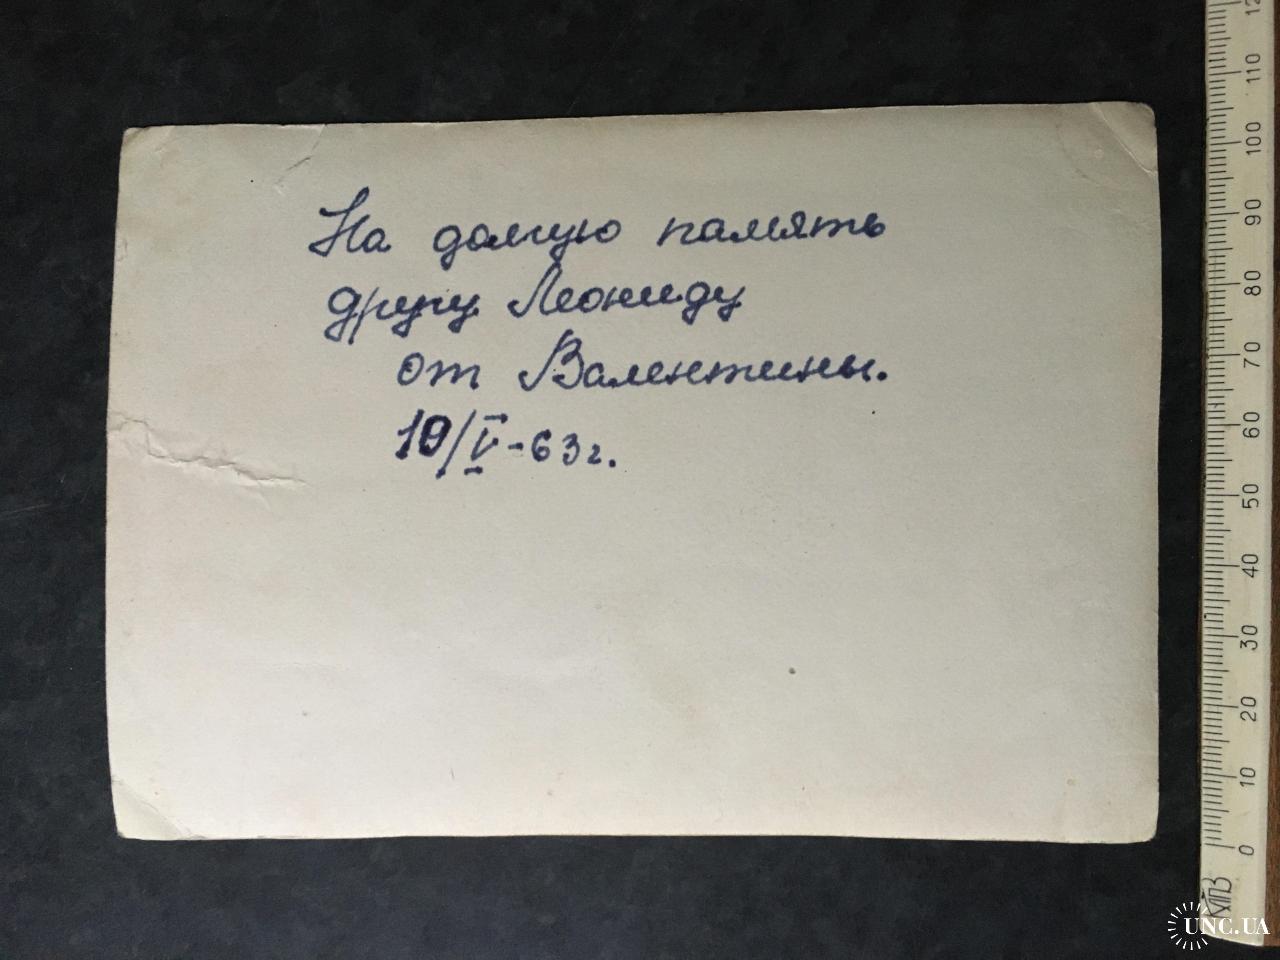 На долгую память
другу Леониду
от Валентины.
10/V-63г.
0
10
20
30
40
50
60
70
80
90
100
110
UNC.UA